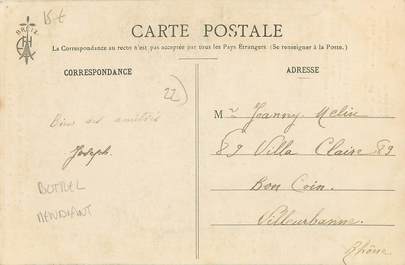 15€
BREIZ
CARTE POSTALE
La Correspondance au recto n'est pas acceptée par tous les Pays Étrangers (Se renseigner à la Poste.)
CORRESPONDANCE
ADRESSE
22)
Bien des amitiés
Joseph.
BOTREL
MENDIANT
Mr Joanny Melin
89 Villa Claire 89
Bon Coin.
Villeurbanne.
Rhône